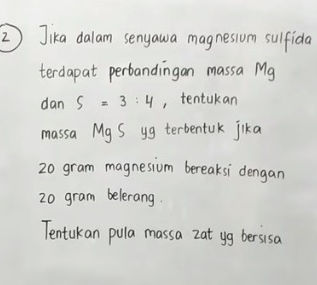 2 Jika dalam senyawa magnesium sulfida
terdapat perbandingan massa Mg
dan S = 3 : 4 , tentukan
massa MgS yg terbentuk jika
20 gram magnesium bereaksi dengan
20 gram belerang.
Tentukan pula massa zat yg bersisa